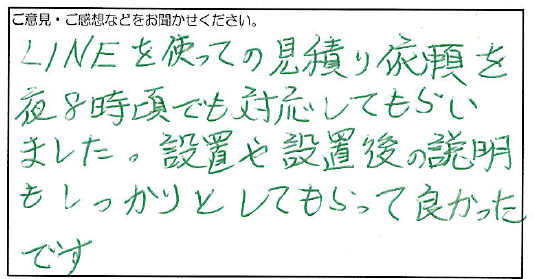 ご意見・ご感想などをお聞かせください。
LINEを使っての見積り依頼を
夜8時頃でも対応してもらい
ました。設置や設置後の説明
もしっかりとしてもらって良かった
です